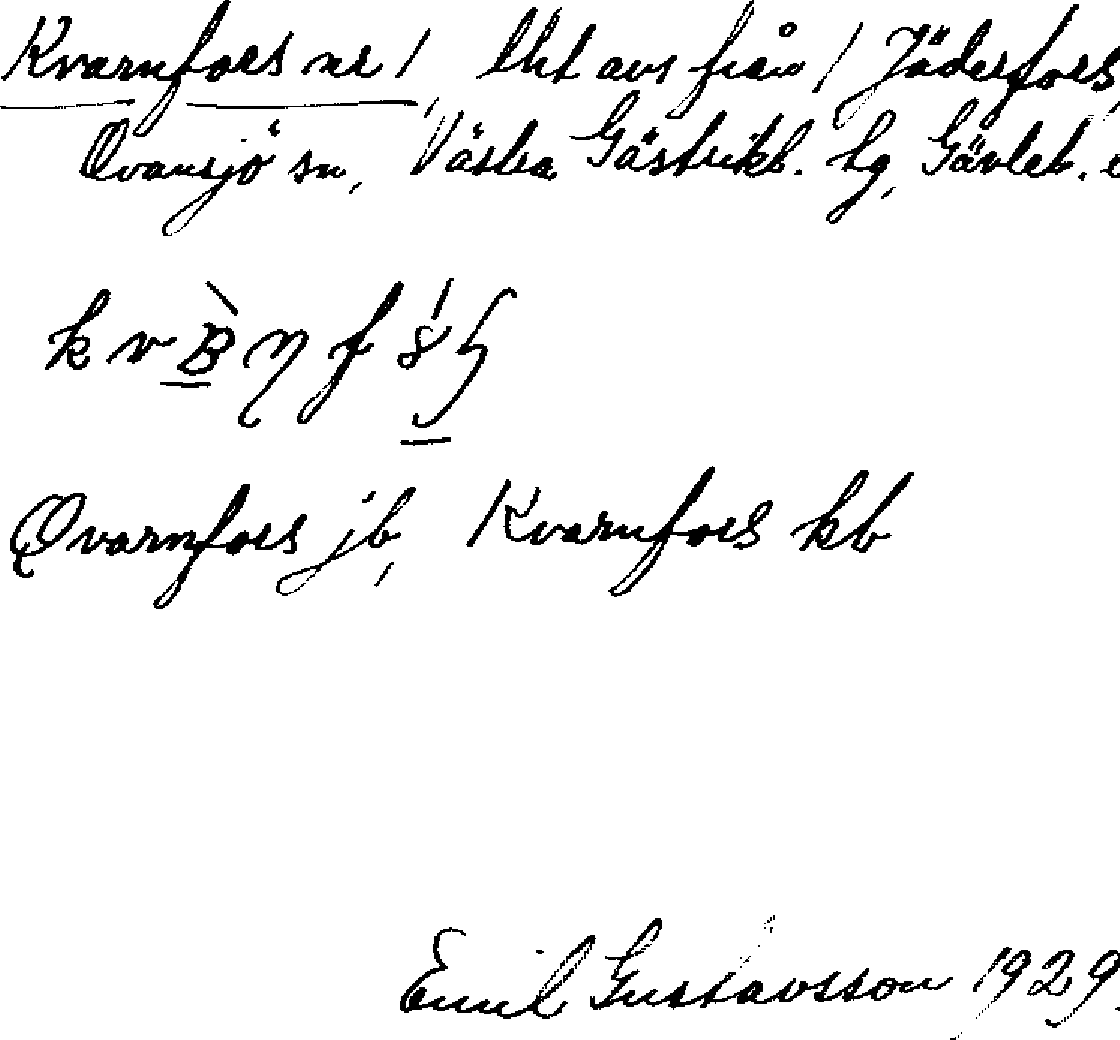 Kvarnfors nr 1, lht avs från 1 Jäderfors,
Ovansjö sn, Västra Gästrikl. tg, Gävleb.
Qvarnfors jb, Kvarnfors kb
Emil Gustavsson 1929.